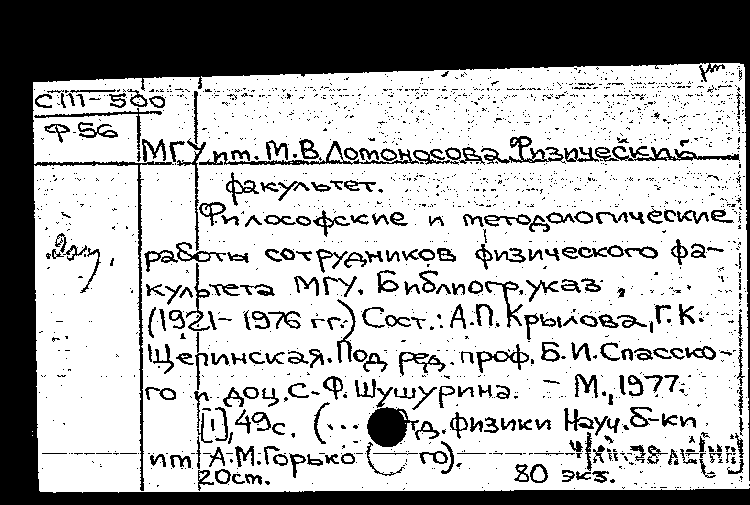 СIII-500
Ф56
МГУ им. М.В Ломоносова. Физический
факультет.
Философские и методологические
работы сотрудников физического фа-
культета МГУ. Библиогр. указ,
(1921-1976 гг.) Сост.: А.П. Крылова, Г.К.
Щепинская. Под ред. проф. Б.И. Спасско-
го и доц. С.Ф. Шушурина. - М., 1977.
[1], 49с. (... тд. физики Науч. б-ки
им А.М. Горько го).
20см. 80 экз.